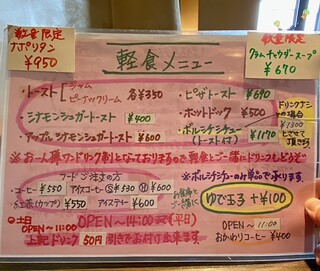 数量限定
ナポリタン
¥950
軽食メニュー
数量限定
クラムチャウダースープ
¥690
・トースト[ジャム
ピーナックリーム 各¥350
・シナモンシュガートースト ¥400
・アップルシナモンシュガートースト ¥600
・ピザトースト ¥690
・ホットドック ¥500
・ボルシチシチュー (トースト付) ¥1170
ドリンクナシ
の場合
¥1300
とさせて
頂きます
※お一人様ワンドリンク制となっておりますので軽食とご一緒にドリンクもどうぞ
フードご注文の方
・コーヒー ¥550 アイスコーヒーⓈ¥530 Ⓜ¥600
・紅茶(カップ) ¥550 アイスティー ¥600
お食事と
ご一緒に
※ボルシチシチューのみ単品で承ります。
ゆで玉子 +¥100
◎土日
OPEN~11:00
OPEN~14:00まで(平日)
上記ドリンク50円引きでお付け出来ます。
OPEN~11:00
おかわりコーヒー ¥400